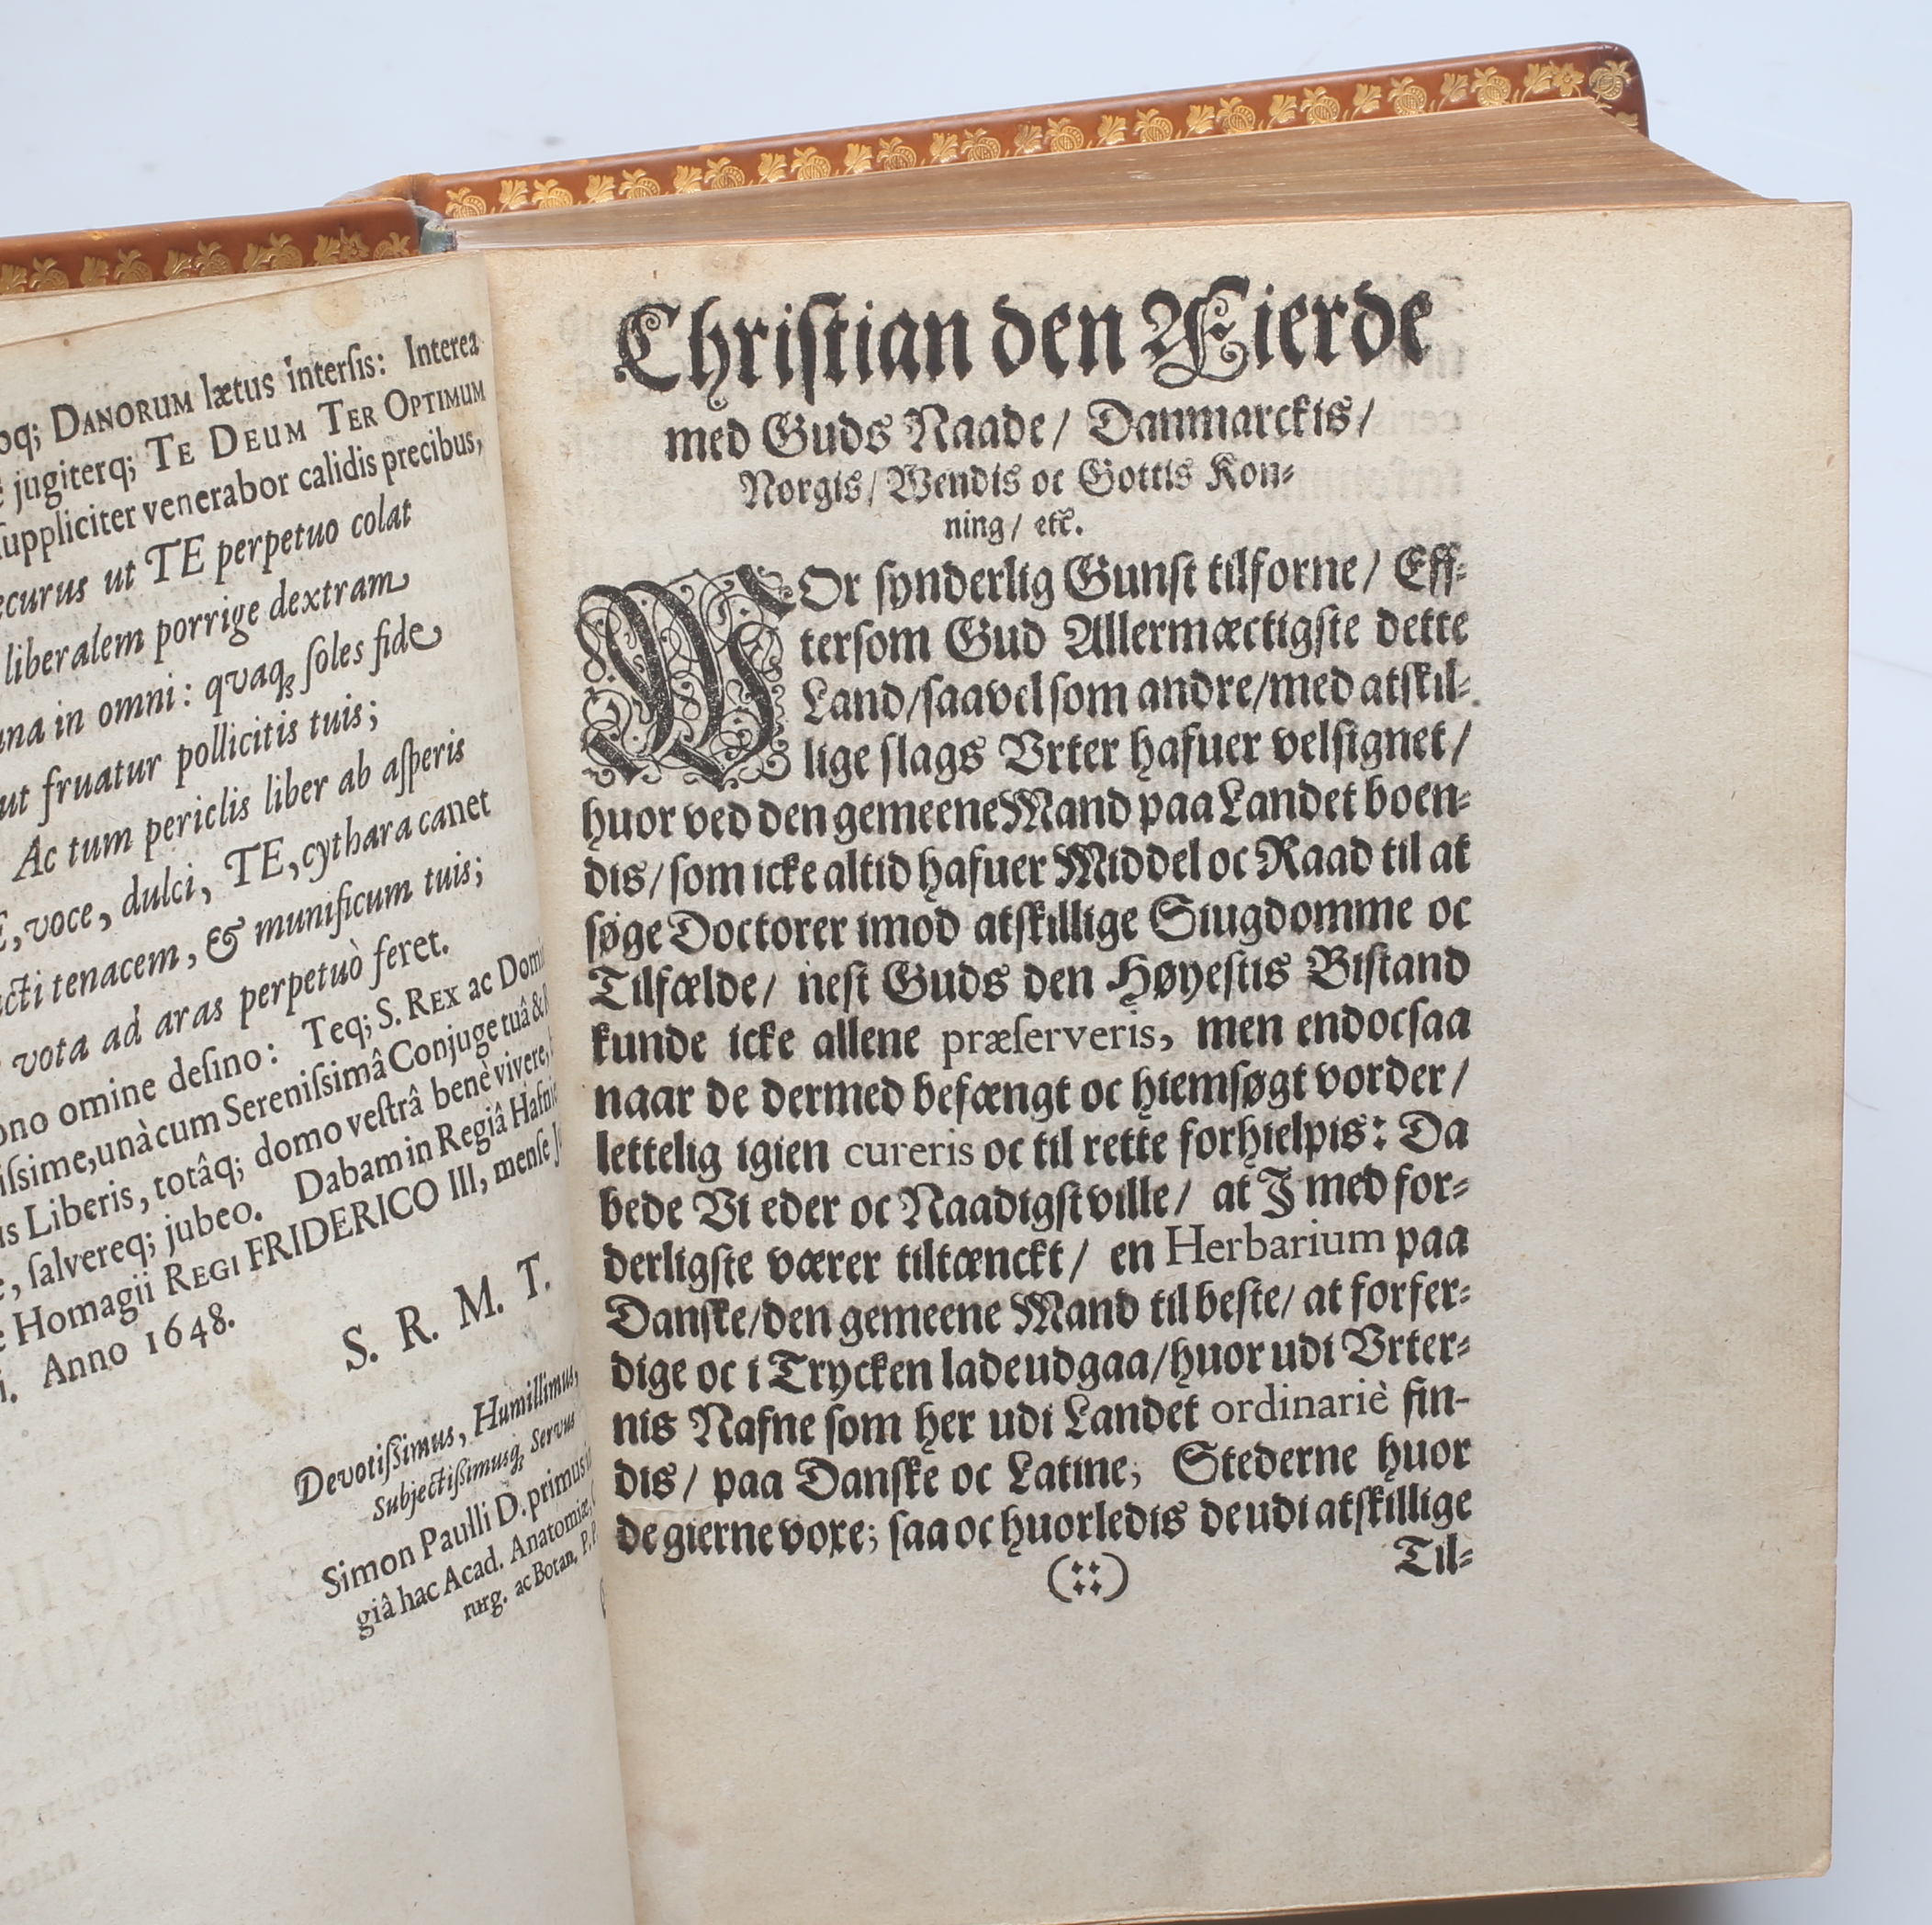 DANORUM lætus interſis: Interea
jugiterq; TE DEUM TER OPTIMUM
ſuppliciter venerabor calidis precibus,
ut TE perpetuo colat
liberalem porrige dextram
in omni: quaq; ſoles fide
ut fruatur pollicitis tuis;
Ac tum periclis liber ab aſperis
voce, dulci, TE, cythara canet
tenacem, & munificum tuis;
vota ad aras perpetuò feret.
omine deſino: Teq; S. REX ac
unà cum Sereniſsimâ Conjuge tuâ &
Liberis, totâq; domo veſtrâ benè vivere,
ſalvereq; jubeo. Dabam in Regiâ
Homagii REGI FRIDERICO III, menſe
Anno 1648.
S. R. M. T.
Devotiſſimus, Humillimus,
Subjectiſſimusq; Servus
Simon Paulli D. primus
giâ hac Acad. Anatomiæ,
rurg. ac Botan. P. P.
Chriſtian den Fierde
med Guds Naade/ Danmarckis/
Norgis/ Wendis oc Gottis Kon-
ning/ etc.
WOr ſynderlig Gunſt tilforne/ Eff-
terſom Gud Allermæctigſte dette
Land/ſaavel ſom andre/med atſkil-
lige ſlags Vrter hafuer velſignet/
huor ved den gemeene Mand paa Landet boen-
dis/ſom icke altid hafuer Middel oc Raad til at
søge Doctorer imod atſkillige Siugdomme oc
Tilfælde/ neſt Guds den Høyeſtis Biſtand
kunde icke allene præſerveris, men endocſaa
naar de dermed befængt oc hiemſøgt vorder/
lettelig igien cureris oc til rette forhielpis: Da
bede Vi eder oc Naadigſt ville/ at I med for-
derligſte værer tiltænckt/ en Herbarium paa
Danſke/den gemeene Mand til beſte/ at forfer-
dige oc i Trycken lade udgaa/huor udi Vrter-
nis Nafne ſom her udi Landet ordinariè fin-
dis/ paa Danſke oc Latine; Stederne huor
de gierne voxe; ſaa oc huorledis de udi atſkillige
Til-